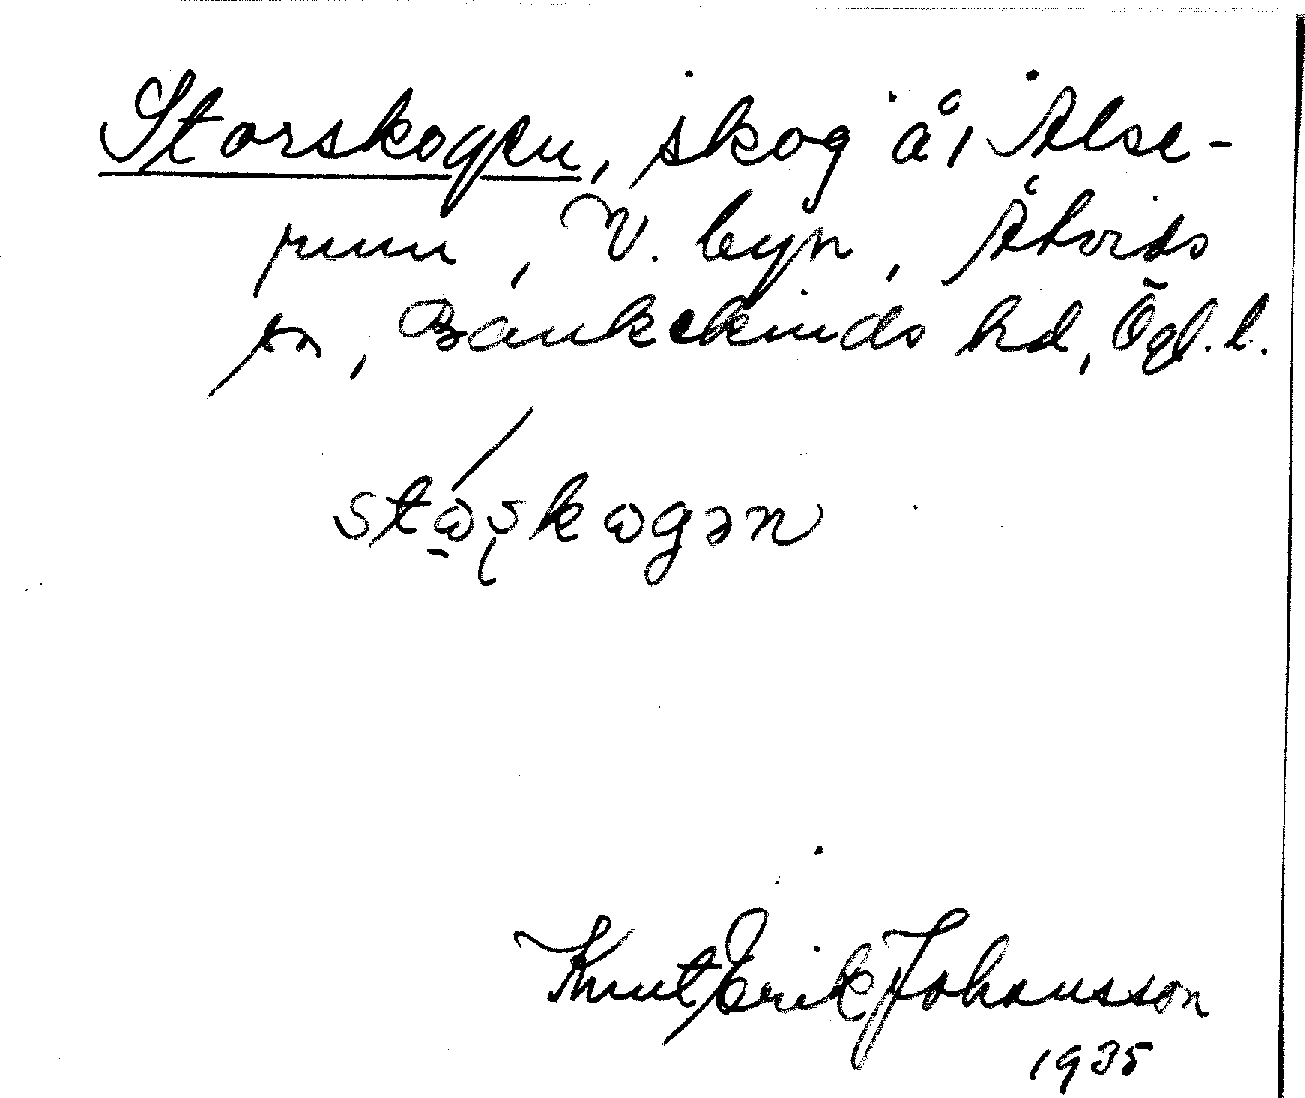 Storskogen, skog å, Alse-
rum, V. byn, Åtvids
sn, Bankekinds hd, Ögl. l.
stɷ̠ʂkɷgən
Knut Erik Johansson
1935